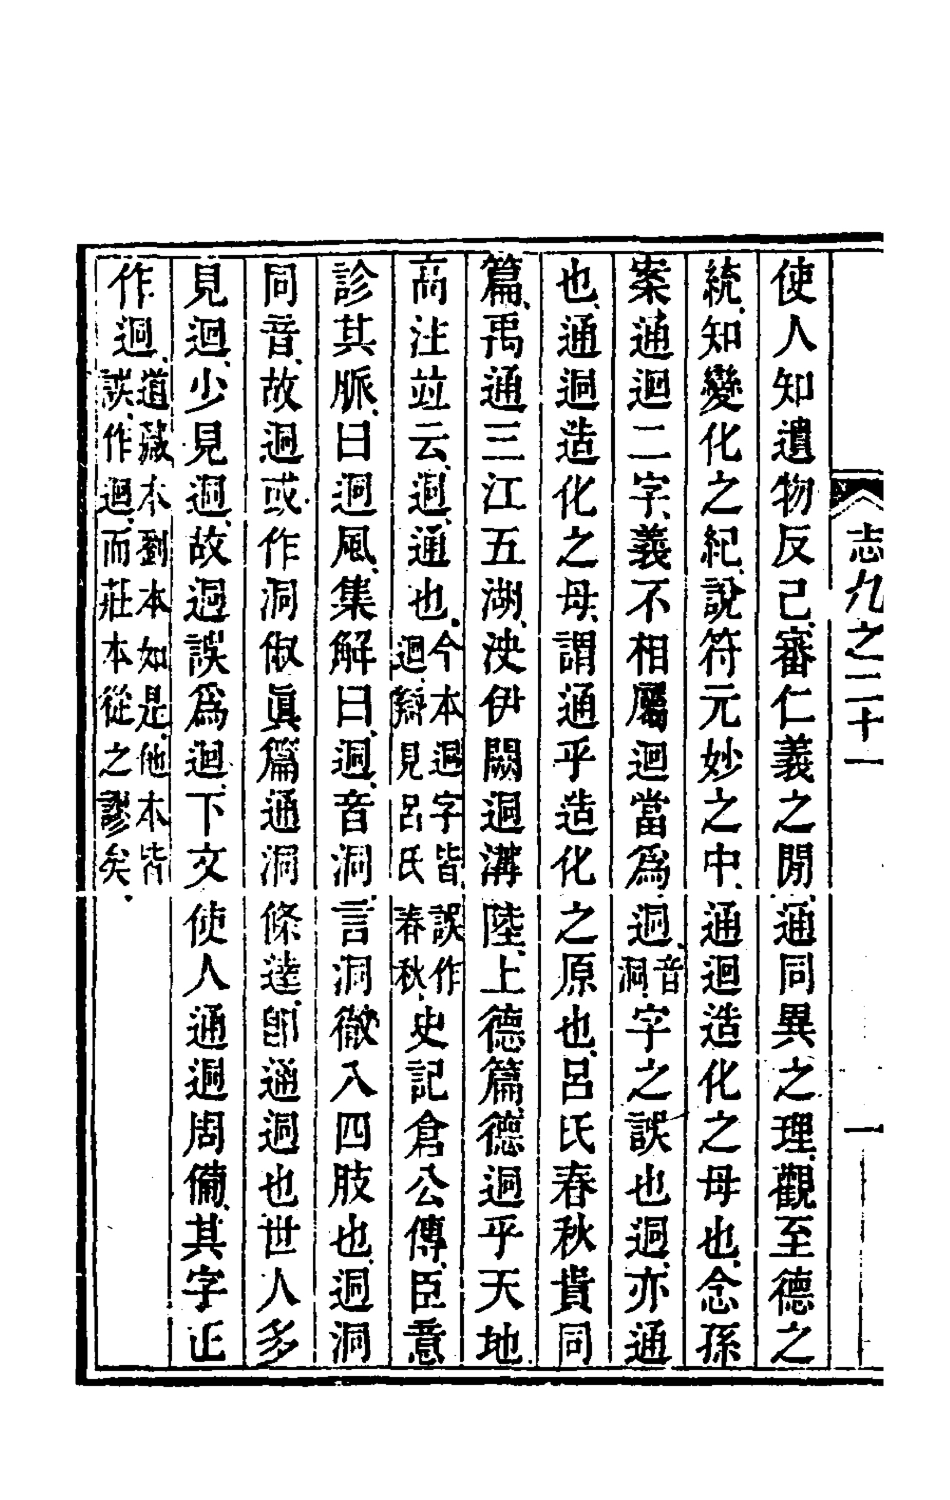 志九之二十一　一
使人知遺物反己、審仁義之閒、通同異之理、觀至德之
統、知變化之紀、說符元妙之中、通迴造化之母也、念孫
案通迴二字、義不相屬、迴當爲迵、音洞、字之誤也、迵亦通
也、通迵造化之母、謂通乎造化之原也、呂氏春秋貴同
篇、禹通三江五湖、決伊闕、迵溝陸、上德篇、德迵乎天地、
高注竝云、迵、通也、今本迵字皆誤作迴、辯見呂氏春秋、史記倉公傳、臣意
診其脈、曰迵風、集解曰、迵、音洞、言洞徹入四肢也、迵洞
同音、故迵或作洞、俶眞篇通洞條達、卽通迵也、世人多
見迴、少見迵、故迵誤爲迴、下文使人通迵周備、其字正
作迵、道藏本劉本如是、他本皆誤作迴、而莊本從之謬矣、